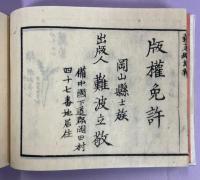 版權免許
岡山縣士族
出版人 難波立敬
備中國下道郡岡田村
四十七番地居住